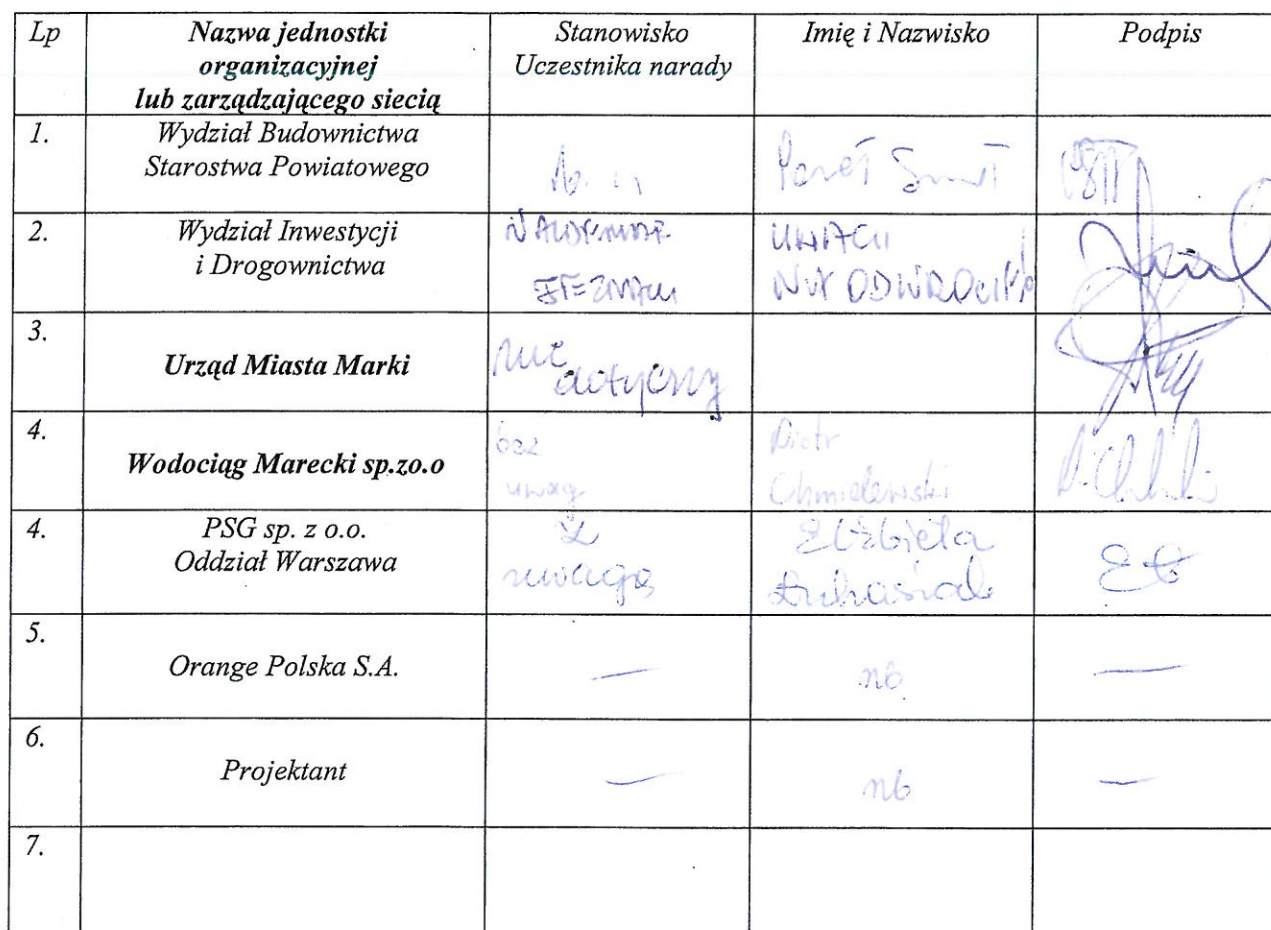 Lp Nazwa jednostki organizacyjnej lub zarządzającego siecią Stanowisko Uczestnika narady Imię i Nazwisko Podpis
1. Wydział Budownictwa Starostwa Powiatowego Paweł
2. Wydział Inwestycji i Drogownictwa
3. Urząd Miasta Marki nie dotyczy
4. Wodociąg Marecki sp.zo.o bez uwag Piotr Chmielewski
4. PSG sp. z o.o. Oddział Warszawa z uwagą Elżbieta Łukasiak
5. Orange Polska S.A. — nb —
6. Projektant — nb —
7.